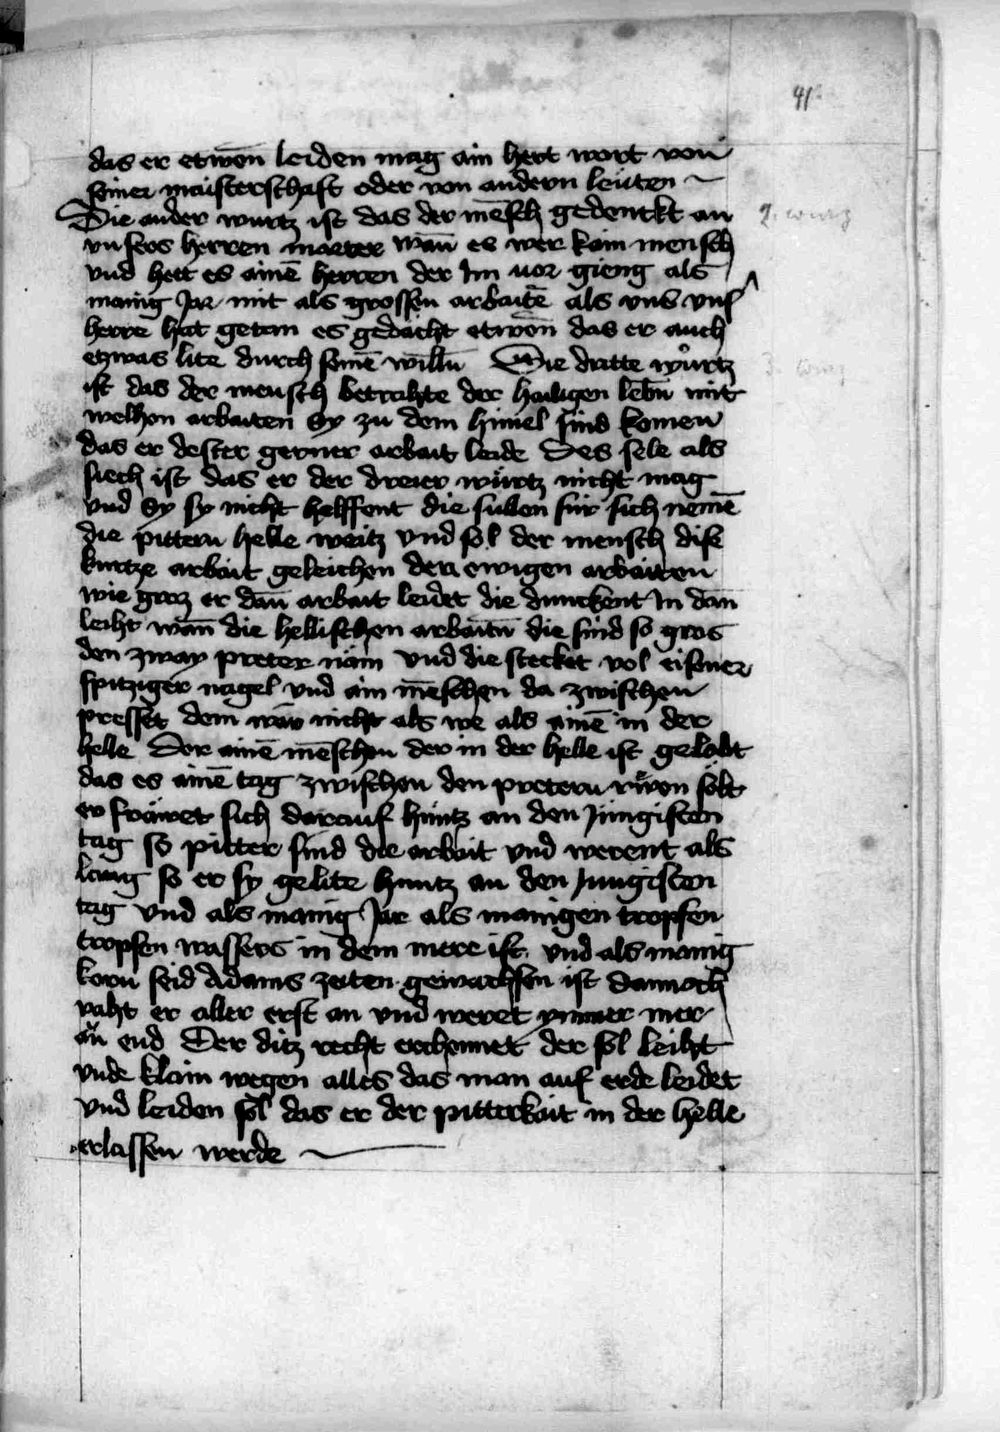 41
das er etwen leiden mag ain hert wort von
seiner maisterschaft oder von andern leuten
Die ander wurtz ist das der mēsch gedenckt an
2. wurz
vnsers herren marter wañ es wer kain mensch
vnd hett es ainē herren der Im vor gieng als
manig Jar mit als grossen arbaitē als vns vnſ
herre hat getan es gedacht etwen das er auch
etzwas lite durch seinē willn̄ Die dritte wůrtz
3. wurz
ist das der mensch betrachte der hailigen lebn̄ mit
welhen arbaiten Sy zu dem himel sind komen
das er dester gerner arbait leide Des sele als
siech ist das er der dreier würtz nicht mag
vnd Sy sy nicht helffent die sullen für sich nemē
die pittern helle weitz vnd sol der mensch dise
kurtze arbait geleichen der ewigen arbaiten
wie groz er dañ arbait leidet die dunckent In dañ
leiht wañ die hellischen arbaitn̄ die sind so gros
den zway preter näm vnd die stecket vol eisner
spitziger nagel vnd ain mēschen da zwischen
presset dem wär nicht als we als ainē in der
helle Der ainē mēschen der in der helle ist gelobt
das es ainē tag zwischen den pretern rwen solt
er fräwet sich darauf huntz an den Jungisten
tag so pitter sind die arbait vnd werent als
lang so er sy gelite huntz an den Jungisten
tag vnd als manig Jar als manigen tropfen
tropfen wassers in dem mere ist vnd als manig
korn seid Adams zeiten gewachsen ist dannoch
vaht er aller erst an vnd weret ymmer mer
ān end Der ditz recht erchennet der sol leiht
vnde klain wegen alles das man auf erde leidet
vnd leiden sol das er der pitterkait in der helle
erlassen werde